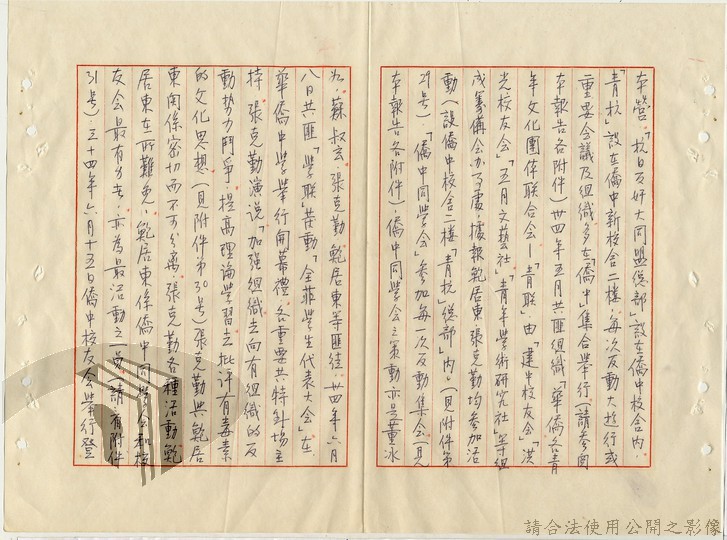 本營「抗日反奸大同盟總部」設在僑中校舍內．
「青抗」設在僑中新校舍二樓；每次反動大遊行或
重要會議及組織多在「僑中」集合舉行（請參閱
本報告各附件）卅四年五月共匪組織「華僑各青
年文化團体联合会－「青联」由「建生校友会」「洪
光校友会」「五月文藝社」「青年學術研究社」等組
成籌備会办了處，據報甄居東張克勤均參加活
動（設僑中校舍二樓「青抗」總部」內。（見附件第
29号）．「僑中同學会」參加每一次反動集会（見
本報告各附件）．僑中同學会之策動亦是董冰
如，蘇叔玄，張克勤甄居東等匪徒；卅四年六月
八日共匪「學联」策動「全菲學生代表大会」在
華僑中學舉行開幕禮，各重要共特針場主
持．張克勤演說「加強組織去向有組織的反
動勢力鬥爭；提高理論學習去批評有毒素
的文化思想（見附件第30号）張克勤與甄居
東関係密切而不可分离，張克勤各種活動甄
居東在所難免；甄居東係僑中同學会和校
友会最有力者；亦為最活動之一員，請看附件
31号）．三十四年六月十五日僑中校友会舉行登
請合法使用公開之影像